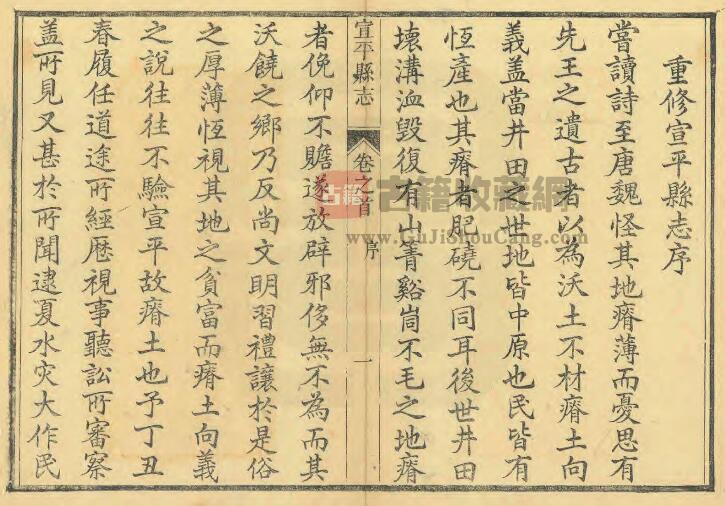 重修宣平縣志序
嘗讀詩至唐魏怪其地瘠薄而憂思有
先王之遺古者以為沃土不材瘠土向
義蓋當井田之世地皆中原也民皆有
恆產也其瘠者肥磽不同耳後世井田
壞溝洫毀復有山菁谿峝不毛之地瘠
宣平縣志
卷之首
序
一
者俛仰不贍遂放辟邪侈無不為而其
沃饒之鄉乃反尚文明習禮讓於是俗
之厚薄恆視其地之貧富而瘠土向義
之說往往不驗宣平故瘠土也予丁丑
春履任道途所經歷視事聽訟所審察
盖所見又甚於所聞逮夏水灾大作民
古籍 古籍收藏網
www.GuJiShouCang.com